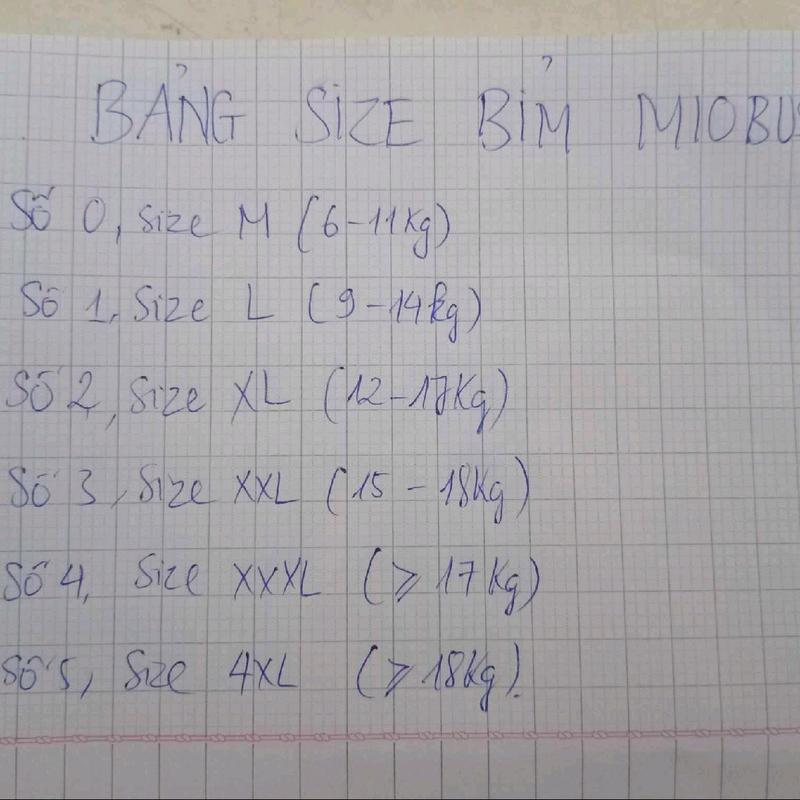 BẢNG SIZE BỈM MIOBU
Số 0, Size M (6-11Kg)
Số 1, Size L (9-14kg)
Số 2, Size XL (12-17Kg)
Số 3, Size XXL (15-18Kg)
Số 4, Size XXXL (≥ 17Kg)
Số 5, Size 4XL (≥ 18Kg).